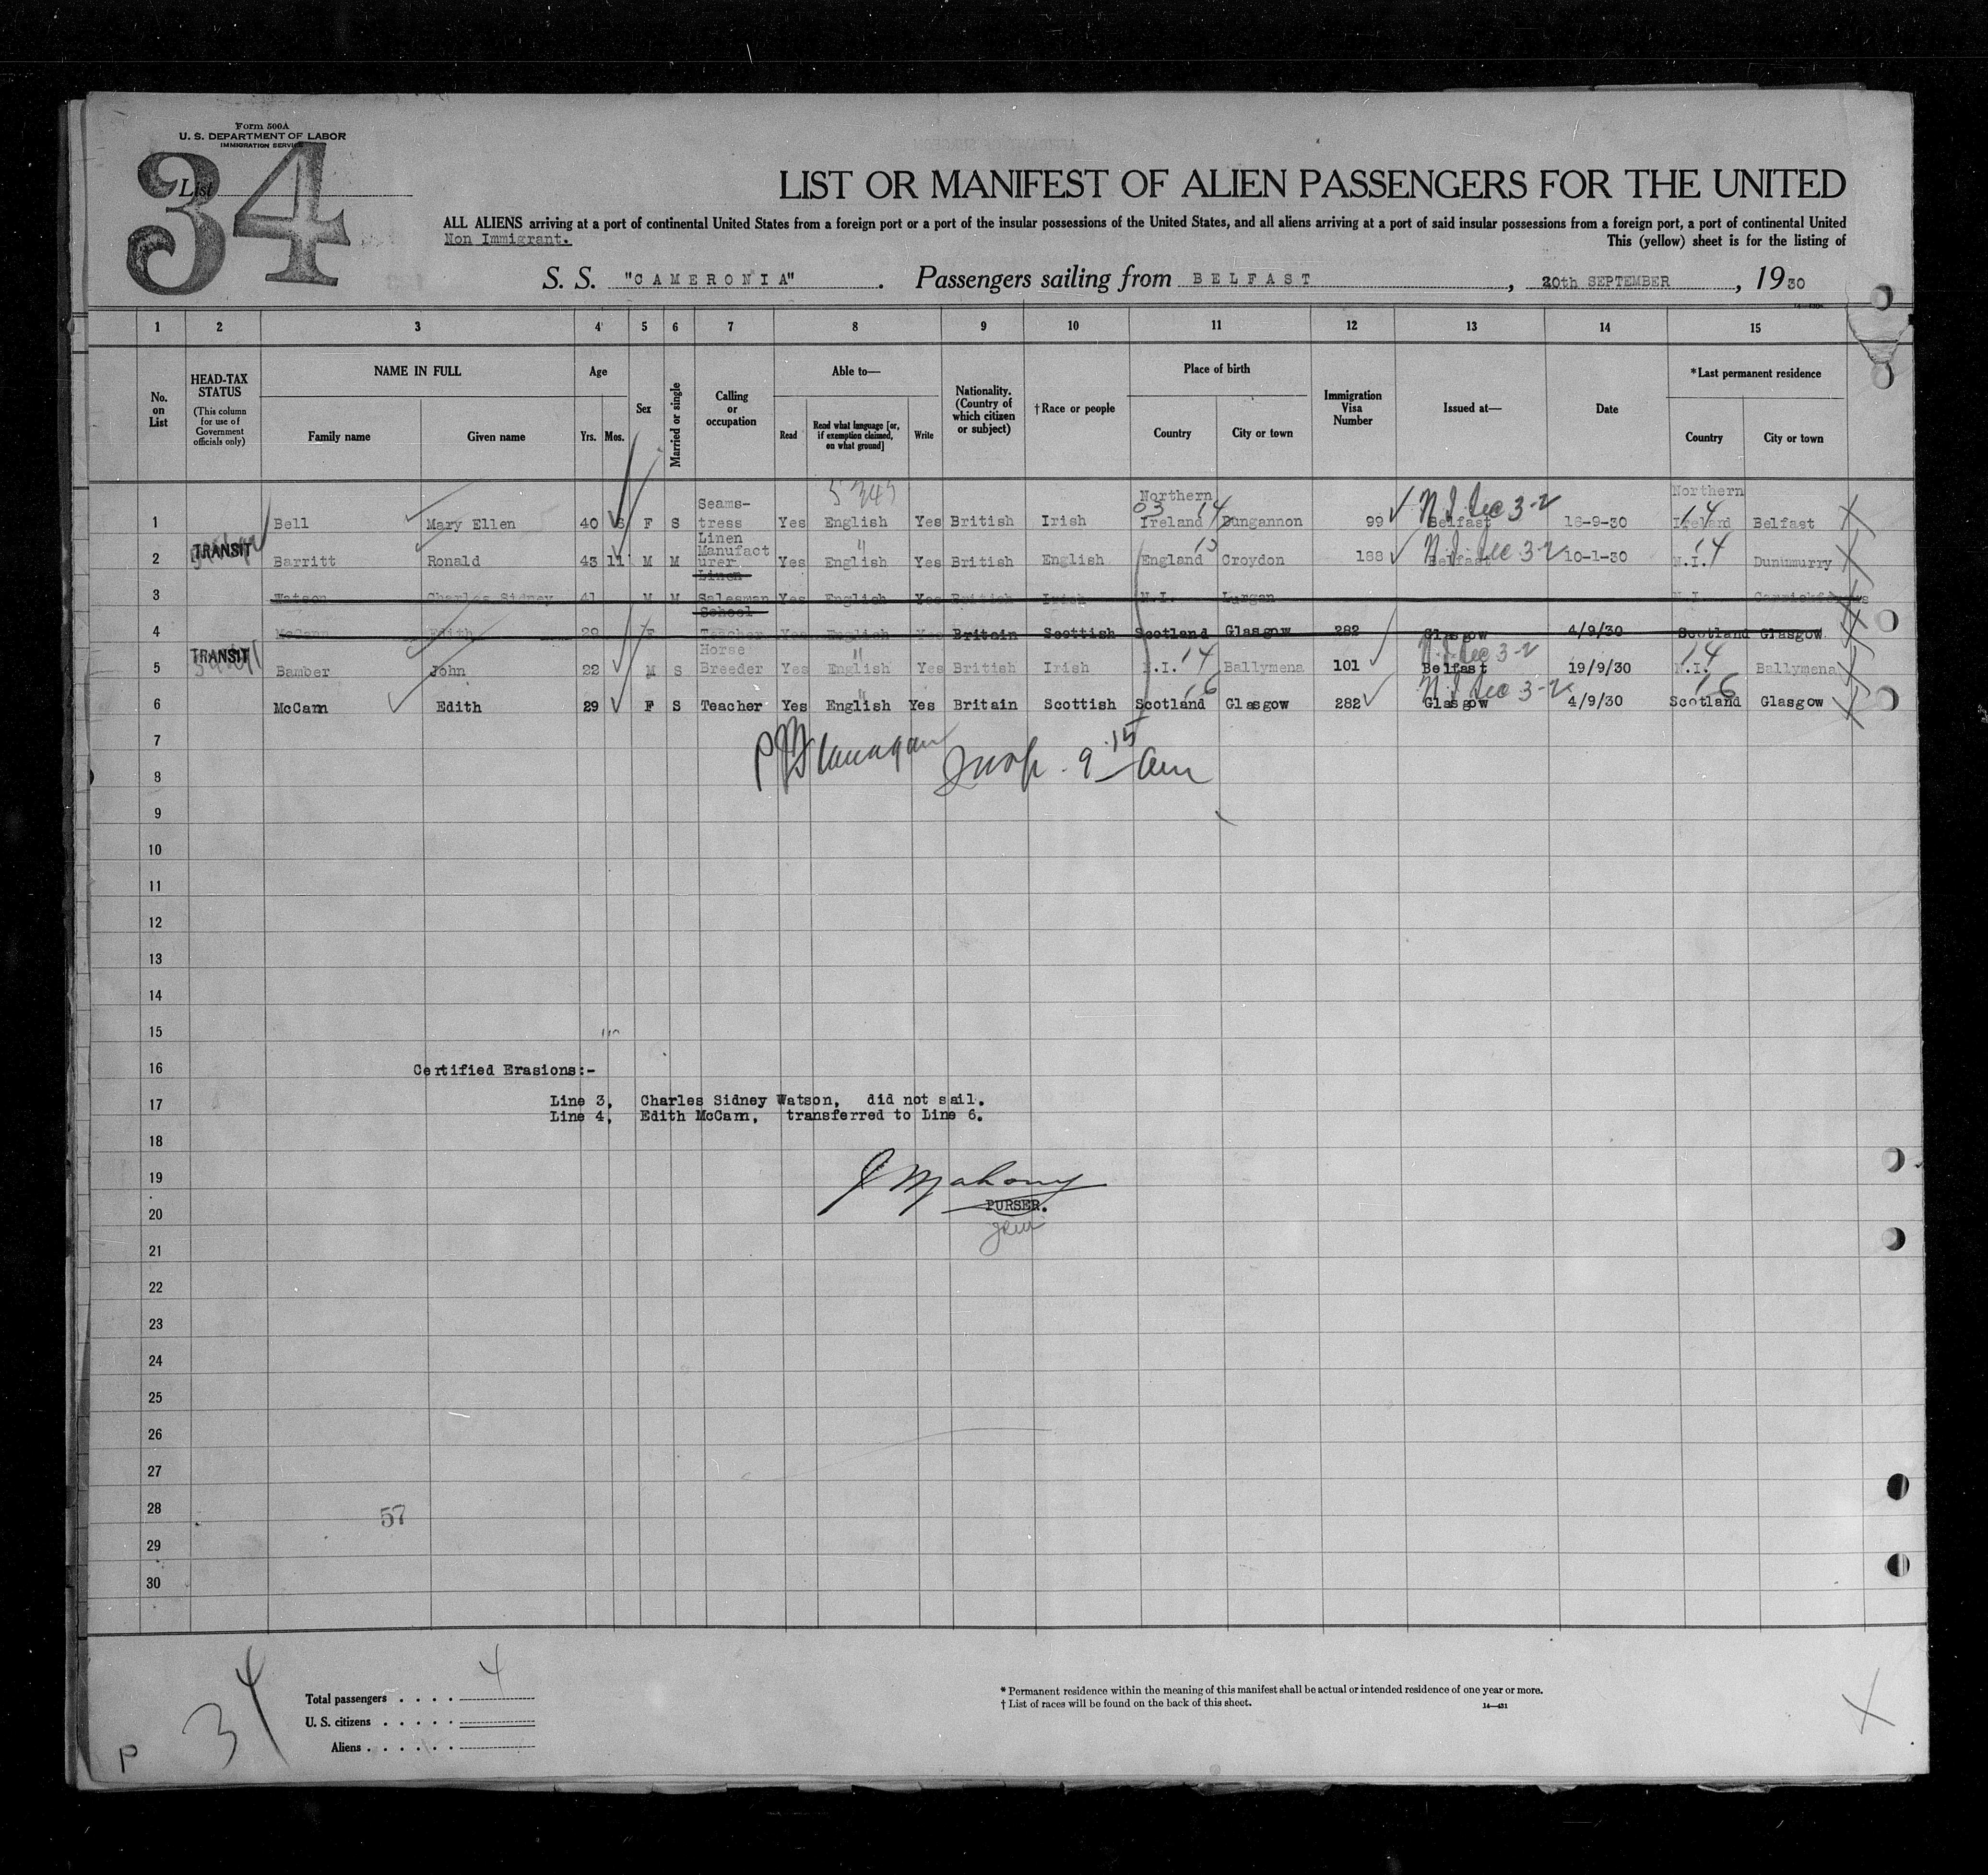 Form 500A
U. S. DEPARTMENT OF LABOR
IMMIGRATION SERVICE
List
34
LIST OR MANIFEST OF ALIEN PASSENGERS FOR THE UNITED
ALL ALIENS arriving at a port of continental United States from a foreign port or a port of the insular possessions of the United States, and all aliens arriving at a port of said insular possessions from a foreign port, a port of continental United
Non Immigrant.
This (yellow) sheet is for the listing of
S. S. "CAMERONIA". Passengers sailing from BELFAST, 20th SEPTEMBER, 1930
1 2 3 4 5 6 7 8 9 10 11 12 13 14 15
No. on List
HEAD-TAX STATUS
(This column for use of Government officials only)
NAME IN FULL
Family name Given name
Age
Yrs. Mos.
Sex
Married or single
Calling or occupation
Able to—
Read
Read what language [or, if exemption claimed, on what ground]
Write
Nationality. (Country of which citizen or subject)
†Race or people
Place of birth
Country City or town
Immigration Visa Number
Issued at—
Date
*Last permanent residence
Country City or town
1 Bell Mary Ellen 40 F S Seams-tress Yes English Yes British Irish Northern Ireland Dungannon 99 Belfast 16-9-30 Northern Ireland Belfast
2 TRANSIT Barritt Ronald 43 11 M M Linen Manufacturer Yes English Yes British English England Croydon 188 Belfast 10-1-30 N.I. Dunmurry
3 Watson Charles Sidney 41 M M Linen Salesman Yes English Yes British Irish N.I. Lurgan N.I. Carrickfergus
4 McCann Edith 29 F School Teacher Yes English Yes Britain Scottish Scotland Glasgow 282 Glasgow 4/9/30 Scotland Glasgow
5 TRANSIT Bamber John 22 M S Horse Breeder Yes English Yes British Irish N.I. Ballymena 101 Belfast 19/9/30 N.I. Ballymena
6 McCam Edith 29 F S Teacher Yes English Yes Britain Scottish Scotland Glasgow 282 Glasgow 4/9/30 Scotland Glasgow
7
8
9
10
11
12
13
14
15
16 Certified Erasions:-
17 Line 3, Charles Sidney Watson, did not sail.
Line 4, Edith McCam, transferred to Line 6.
18
19
J Mahony
20 PURSER.
21
22
23
24
25
26
27
28 57
29
30
34
Total passengers . . . . 4
U. S. citizens . . . . .
Aliens . . . . . .
* Permanent residence within the meaning of this manifest shall be actual or intended residence of one year or more.
† List of races will be found on the back of this sheet.
14—431
P
X